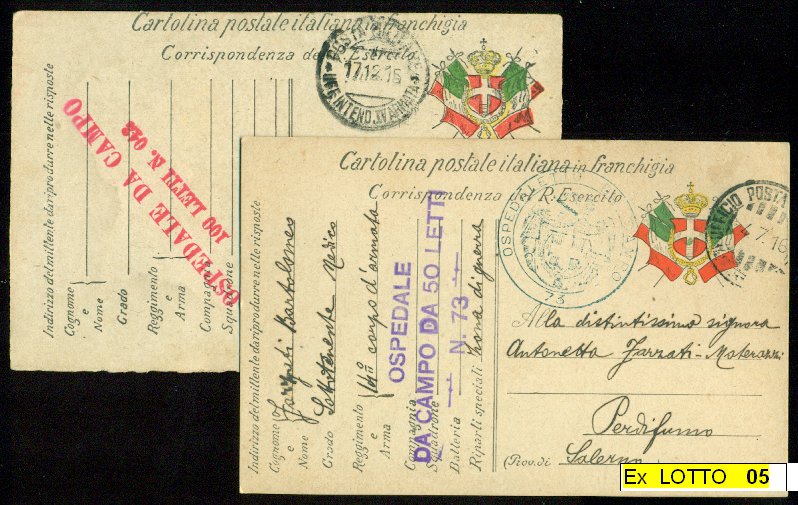 Cartolina postale italiana in franchigia
Corrispondenza del R. Esercito
POSTA MILITARE
17.12.15
UFF. INTEND. A V ARMATA
Indirizzo del mittente da riprodurre nelle risposte
Cognome
e
Nome
Grado
Reggimento
e
Arma
Compagnia
Squadrone
OSPEDALE DA CAMPO
100 LETTI N. 042
Cartolina postale italiana in franchigia
Corrispondenza del R. Esercito
UFFICIO POSTA
7.16
OSPEDALE
73
Indirizzo del mittente da riprodurre nelle risposte
Cognome
e
Nome
Bartolomeo
Grado
Sottotenente Medico
Reggimento
e
Arma
14º corpo d'armata
Compagnia
Squadrone
Batteria
Riparti speciali
Zona di guerra
OSPEDALE
DA CAMPO DA 50 LETTI
N. 73
Alla distintissima signora
Antonetta Jazzati-Materazzi
Perdifumo
(Prov. di Salerno
Ex LOTTO 05